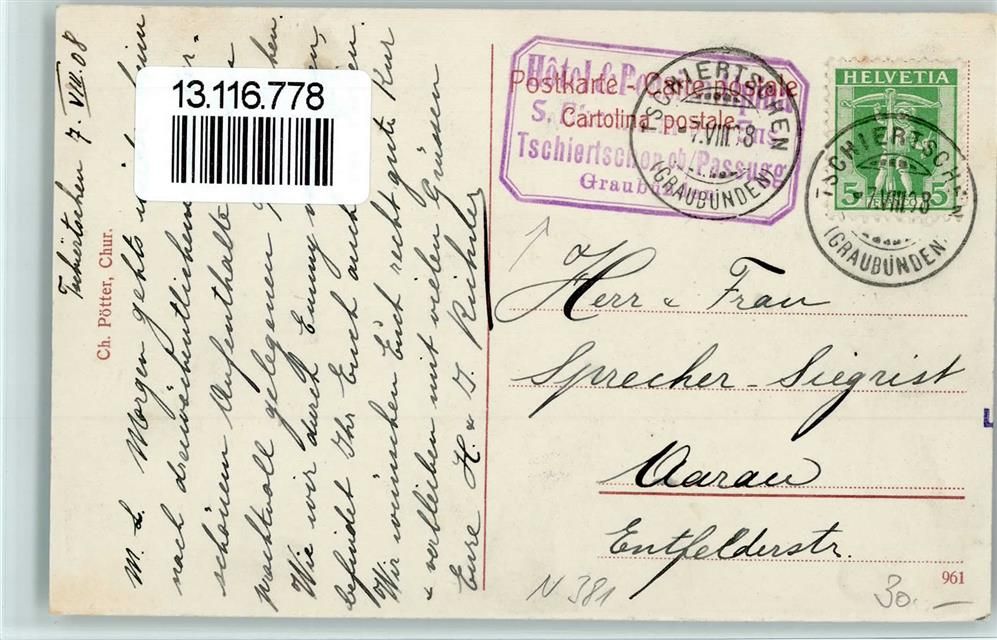 Tschiertschen 7. VIII. 08
M. L. Morgen gehts
nach dreiwöchentlichem
schönen Aufenthalte
prachtvoll gelegenen
Wie wir durch Emmy
befindet Ihr Euch auch
Wir wünschen Euch recht gute Kur
& verbleiben mit vielen Grüssen
Eure H. & J. Richner
Ch. Pötter, Chur.
13.116.778
Hôtel &
Postkarte - Carte postale
Cartolina postale
Tschiertschen ob/Passugg
Graubünden
TSCHIERTSCHEN
-7.VIII.08
(GRAUBÜNDEN)
HELVETIA
5 5
TSCHIERTSCHEN
-7.VIII.08
(GRAUBÜNDEN)
Herr & Frau
Sprecher-Siegrist
Aarau
Entfelderstr.
961
N 381
30.-